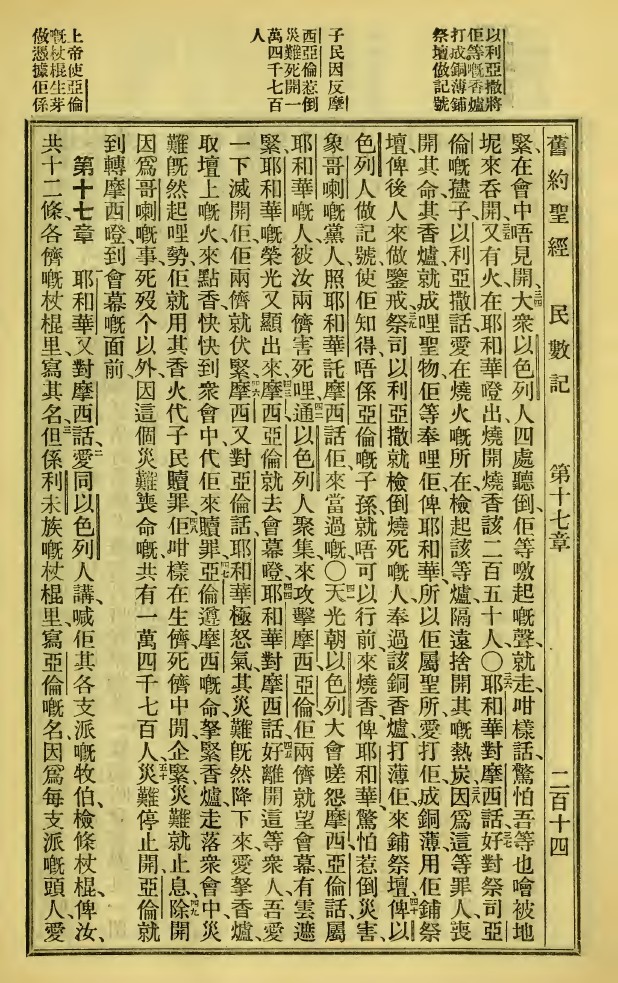 以利亞撒將
佢等嘅香爐
打成銅薄鋪
祭壇做記號
子民因反摩
西亞倫惹倒
災難死開一
萬四千七百
人
上帝使亞倫
嘅杖棍生芽
做憑據佢係
舊約聖經 民數記 第十七章 二百十四
緊、在會中唔見開、三四大衆以色列人四處聽倒佢等噭起嘅聲、就走、咁樣話、驚怕吾等也噲被地
坭來吞開、三五又有火在耶和華嶝出燒開燒香該二百五十人、〇三六耶和華對摩西話、三七好對祭司亞
倫嘅孻子以利亞撒話、愛在燒火嘅所在檢起該等爐、隔遠捨開其嘅熱炭、三八因爲這等罪人、喪
開其命、其香爐就成哩聖物、佢等奉哩佢俾耶和華、所以佢屬聖、所愛打佢成銅薄、用佢鋪祭
壇、俾後人來做鑒戒、三九祭司以利亞撒就檢倒燒死嘅人奉過該銅香爐、打薄佢來鋪祭壇、四十俾以
色列人做記號、使佢知得、唔係亞倫嘅子孫、就唔可以行前來燒香俾耶和華、驚怕惹倒災害、
象哥喇嘅黨人、照耶和華託摩西話佢來當過嘅、〇四一天光朝以色列大會嗟怨摩西亞倫話、屬
耶和華嘅人、被汝兩儕害死哩、四二通以色列人聚集來攻擊摩西亞倫、佢兩儕就望會幕、有雲遮
緊、耶和華嘅榮光又顯出來、四三摩西亞倫就去會幕嶝、四四耶和華對摩西話、四五好離開這等衆人、吾愛
一下滅開佢、佢兩儕就伏緊、四六摩西又對亞倫話、耶和華極怒氣、其災難旣然降下來、愛拏香爐、
取壇上嘅火來點香、快快到衆會中、代佢來贖罪、四七亞倫遵摩西嘅命、拏緊香爐走落衆會中、災
難旣然起哩勢、佢就用其香火代子民贖罪、四八佢咁樣在生儕死儕中間企緊、災難就止息、四九除開
因爲哥喇嘅事死歿个以外、因這個災難喪命嘅、共有一萬四千七百人、五十災難停止開、亞倫就
到轉摩西嶝、到會幕嘅面前、
第十七章 一耶和華又對摩西話、二愛同以色列人講、喊佢其各支派嘅牧伯、檢條杖棍、俾汝、
共十二條、各儕嘅杖棍里、寫其名、三但係利未族嘅杖棍里、寫亞倫嘅名、因爲每支派嘅頭人、愛